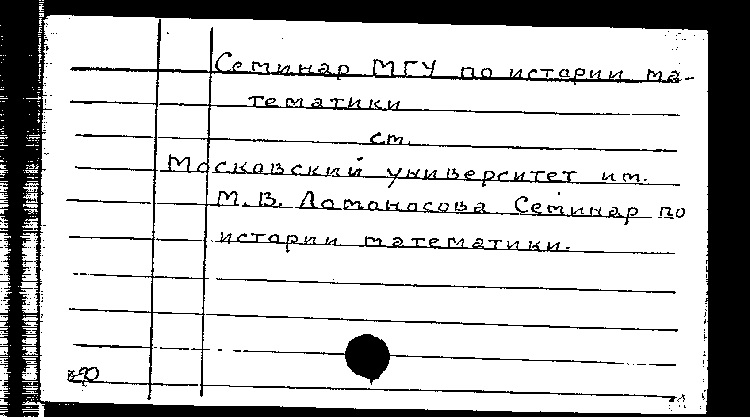 Семинар МГУ по истории ма-
тематики
см.
Московский университет им.
М.В. Ломоносова Семинар по
истории математики.